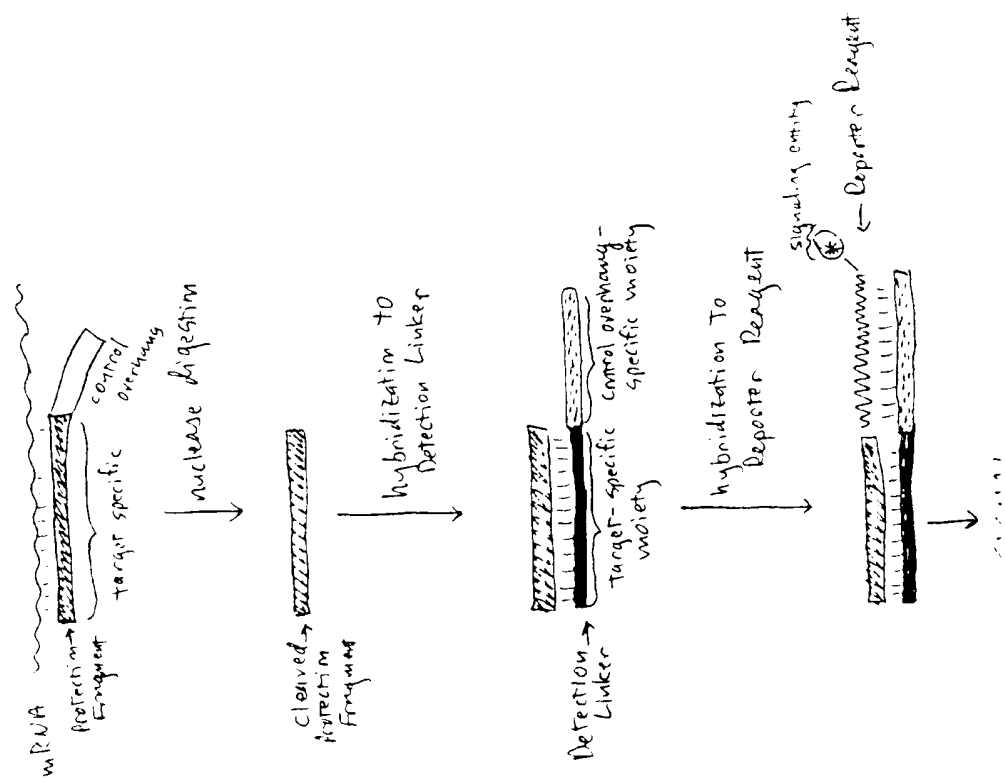 mRNA
Protection →
Fragment
target specific
control
overhang
nuclease digestion
Cleaved →
Protection
Fragment
hybridization to
Detection Linker
Detection →
Linker
target-specific
moiety
control overhang-
specific moiety
hybridization To
Reporter Reagent
signaling entity
*
← Reporter Reagent